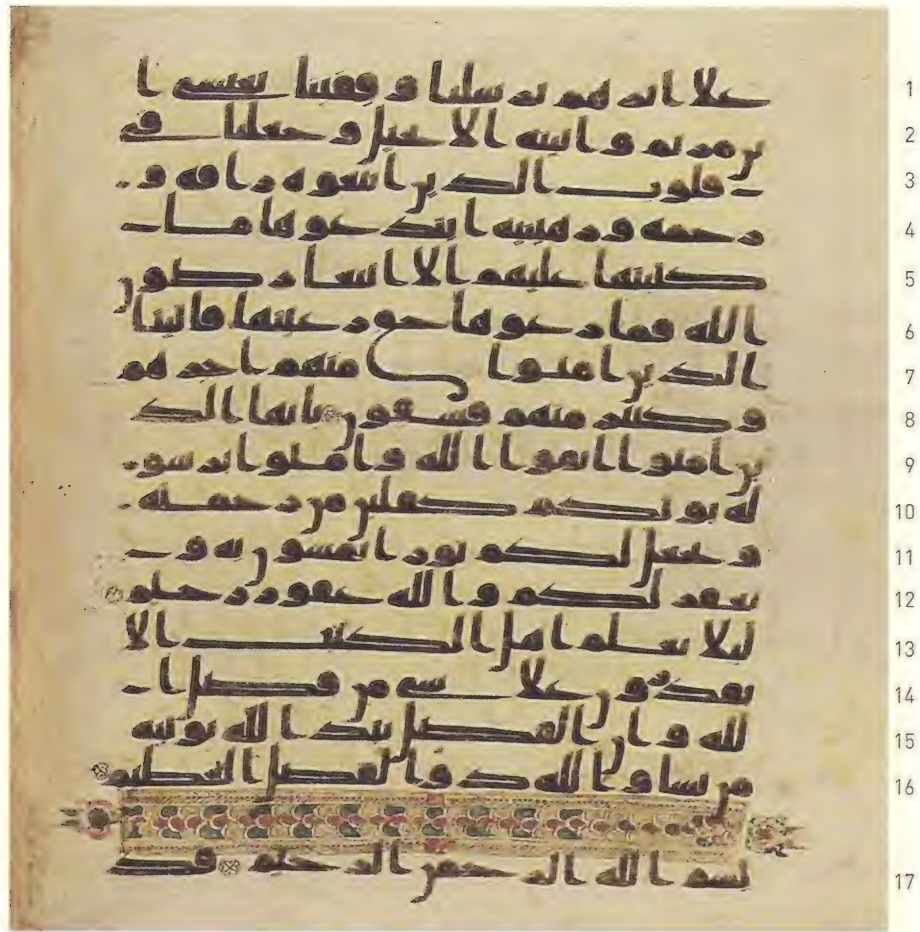 علا اثرهم برسلنا وقفينا بعيسى ا 1
بن مريم واتينه الانجيل وجعلنا في 2
قلوب الذين اتبعوه رافة و 3
رحمة ورهبنية ابتدعوها ما 4
كتبنها عليهم الا ابتغا رضون 5
الله فما رعوها حق رعيتها فاتينا 6
الذين امنوا منهم اجرهم 7
وكثير منهم فسقون يايها الذ 8
ين امنوا اتقوا الله وامنوا برسو 9
له يوتكم كفلين من رحمته 10
ويجعل لكم نورا تمشون به و 11
يغفر لكم والله غفور رحيم 12
ليلا يعلم اهل الكتب الا 13
يقدرون علا شي من فضل ا 14
لله وان الفضل بيد الله يوتيه 15
من يشا والله ذو الفضل العظيم 16
بسم الله الرحمن الرحيم قد 17